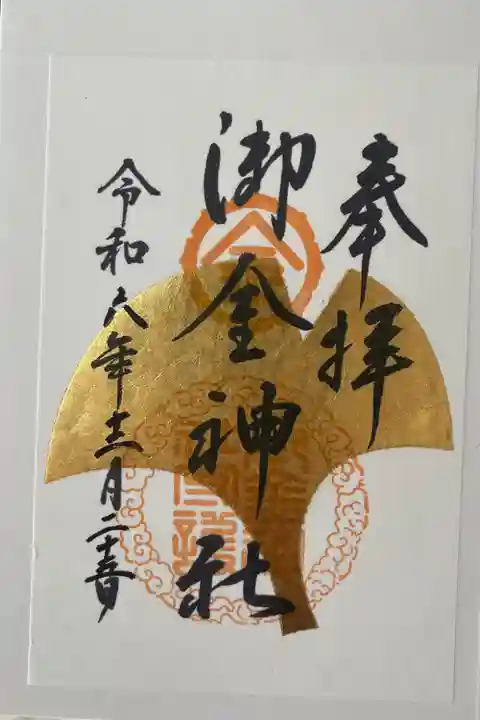 奉拝
御金神社
令和六年十二月二十三日